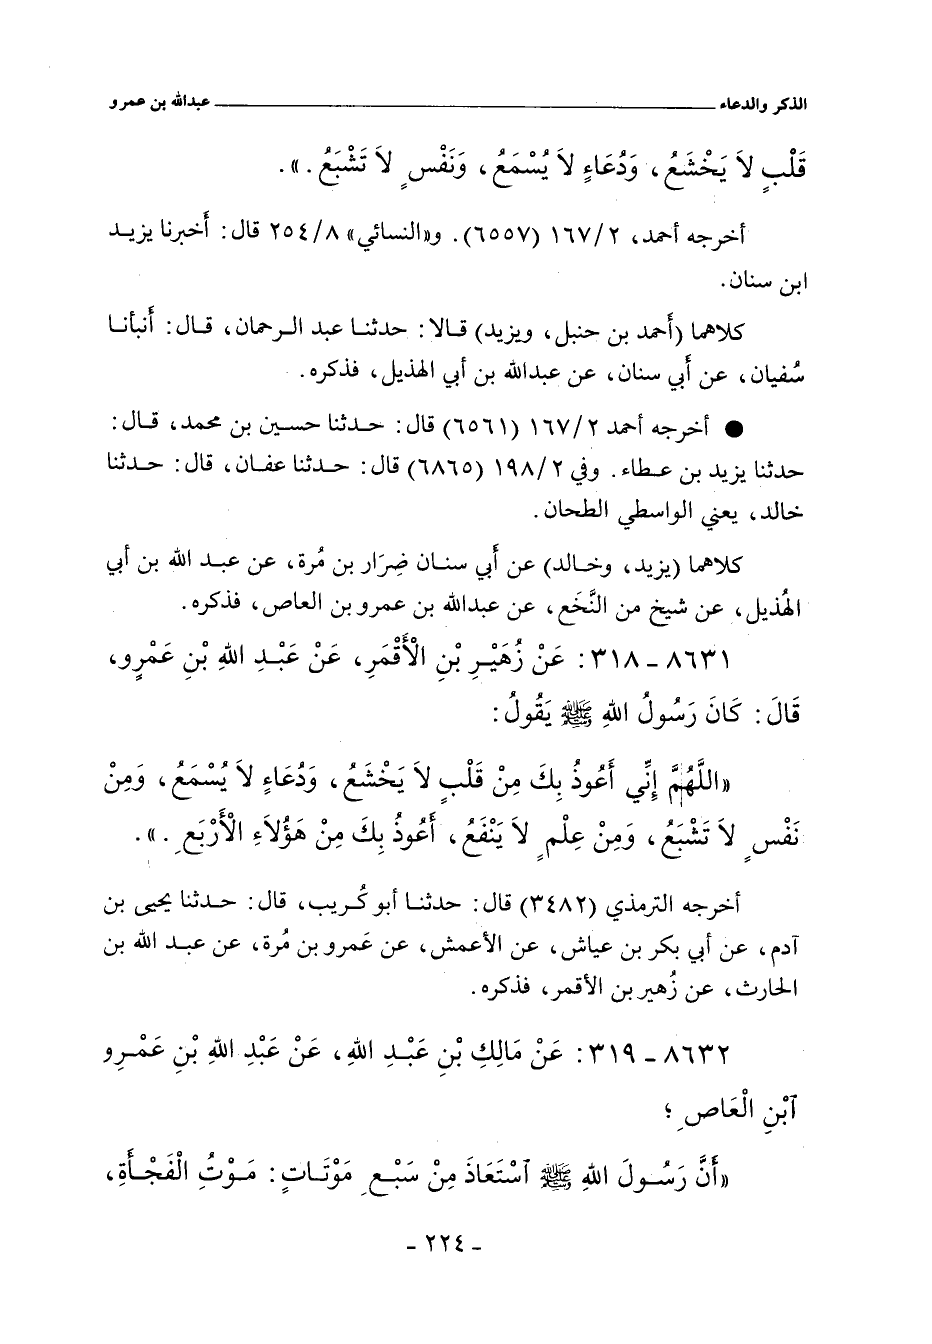 الذكر والدعاء ــــــــــــــــــــــــــــ عبدالله بن عمرو
قَلْبٍ لاَ يَخْشَعُ، وَدُعَاءٍ لاَ يُسْمَعُ، وَنَفْسٍ لاَ تَشْبَعُ.».
أخرجه أحمد، ١٦٧/٢ (٦٥٥٧). و«النسائي» ٢٥٤/٨ قال: أخبرنا يزيد
ابن سنان.
كلاهما (أَحمد بن حنبل، ويزيد) قالا: حدثنا عبد الرحمان، قال: أَنبأنا
سُفيان، عن أَبي سنان، عن عبدالله بن أبي الهذيل، فذكره.
● أخرجه أحمد ١٦٧/٢ (٦٥٦١) قال: حدثنا حسين بن محمد، قال:
حدثنا يزيد بن عطاء. وفي ١٩٨/٢ (٦٨٦٥) قال: حدثنا عفان، قال: حدثنا
خالد، يعني الواسطي الطحان.
كلاهما (يزيد، وخالد) عن أَبي سنان ضِرَار بن مُرة، عن عبد الله بن أبي
الهُذيل، عن شيخ من النَّخَع، عن عبدالله بن عمرو بن العاص، فذكره.
٨٦٣١ ـ ٣١٨: عَنْ زُهَيْرِ بْنِ الْأَقْمَرِ، عَنْ عَبْدِ اللهِ بْنِ عَمْرٍو،
قَالَ: كَانَ رَسُولُ اللهِ ﷺ يَقُولُ:
«اللَّهُمَّ إِنِّي أَعُوذُ بِكَ مِنْ قَلْبٍ لاَ يَخْشَعُ، وَدُعَاءٍ لاَ يُسْمَعُ، وَمِنْ
نَفْسٍ لاَ تَشْبَعُ، وَمِنْ عِلْمٍ لاَ يَنْفَعُ، أَعُوذُ بِكَ مِنْ هَؤُلاَءِ الْأَرْبَعِ.».
أخرجه الترمذي (٣٤٨٢) قال: حدثنا أبو كُريب، قال: حدثنا يحيى بن
آدم، عن أبي بكر بن عياش، عن الأعمش، عن عَمرو بن مُرة، عن عبد الله بن
الحارث، عن زُهير بن الأقمر، فذكره.
٨٦٣٢ ـ ٣١٩: عَنْ مَالِكِ بْنِ عَبْدِ اللهِ، عَنْ عَبْدِ اللهِ بْنِ عَمْرِو
آبْنِ الْعَاصِ؛
«أَنَّ رَسُولَ اللهِ ﷺ آسْتَعَاذَ مِنْ سَبْعِ مَوْتَاتٍ: مَوْتُ الْفَجْأَةِ،
- ٢٢٤ -